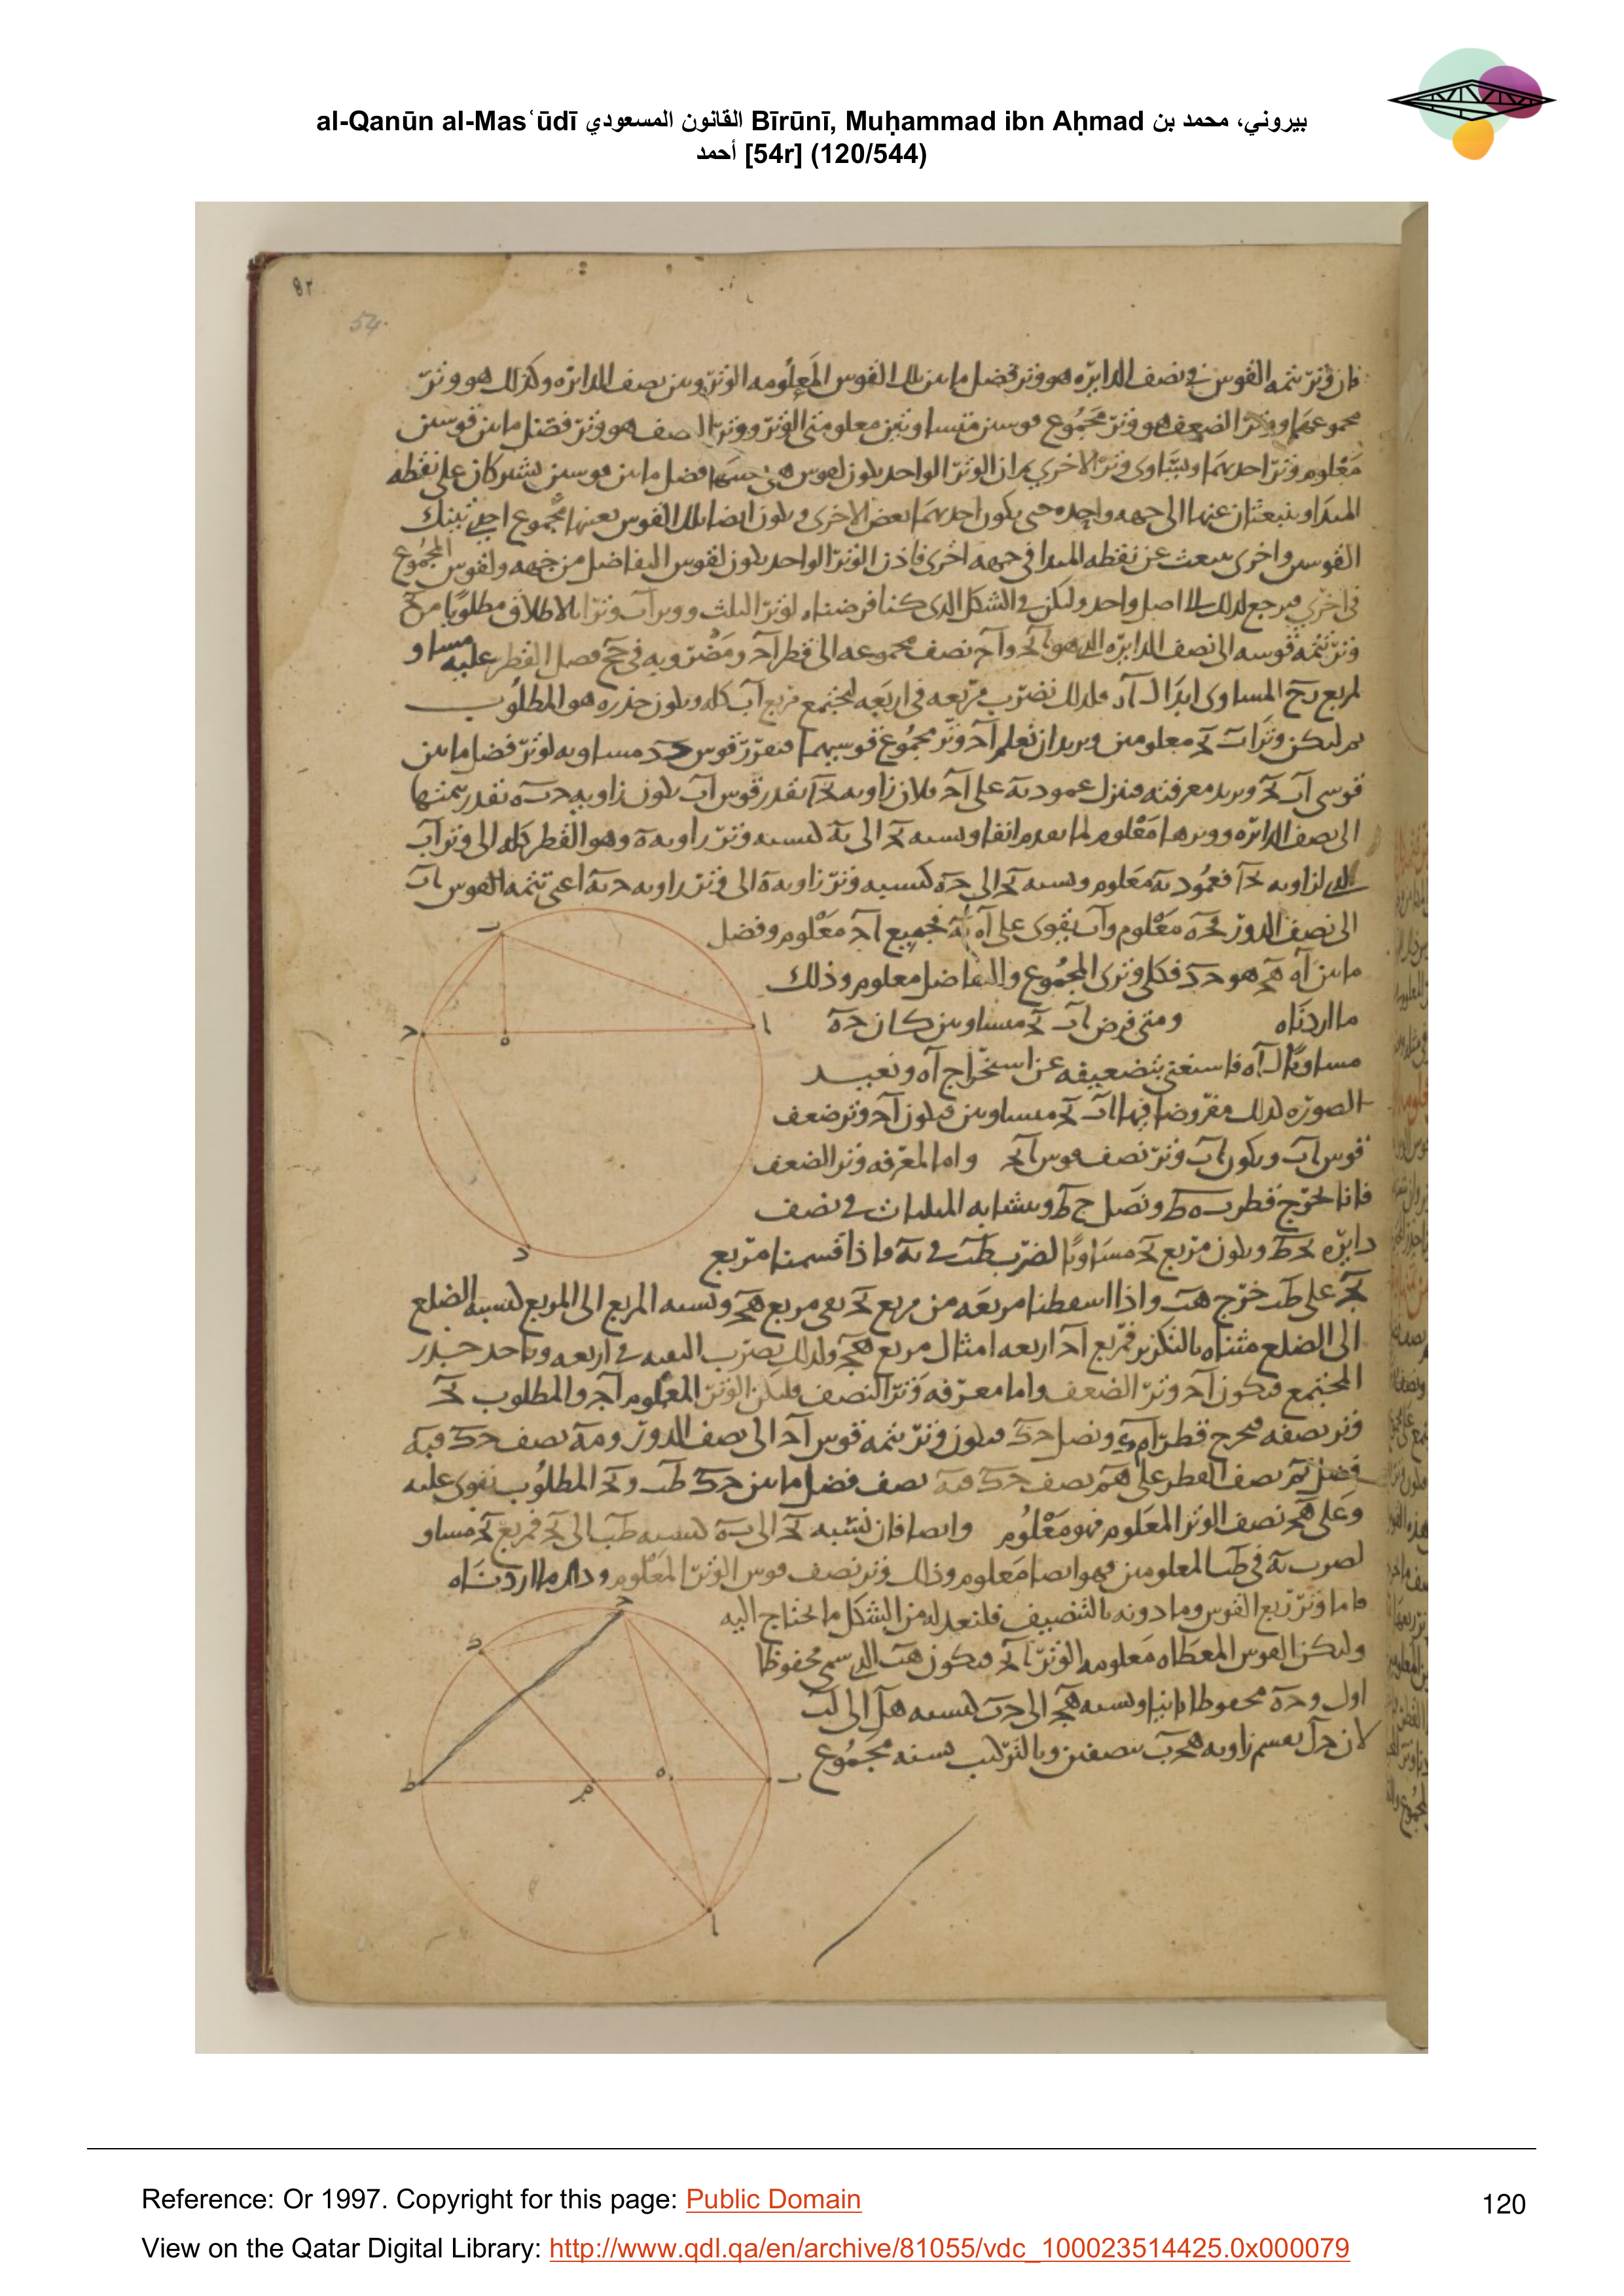 al-Qanūn al-Masʿūdī القانون المسعودي Bīrūnī, Muḥammad ibn Aḥmad بيروني، محمد بن
أحمد [54r] (120/544)
٨٢
54.
فان وتر تتمه القوس في نصف الدايره هو وتر فضل ما بين تلك القوس المعلومه الوتر وبين نصف الدايره وكذلك هو وتر
مجموعهما ووتر الضعف هو وتر مجموع قوسين متساويتين معلومتى الوتر ووتر النصف هو وتر فضل ما بين قوسين
معلوم وتر احديهما ويساوى وتر الاخرى ثم ان الوتر الواحد يكون لقوس هى فضل ما بين قوسين تشتركان على نقطه
المبدا وينبعثان عنها الى جهه واحده حتى يكون احديهما بعض الاخرى ويكون ايضا لتلك القوس بعينها مجموع احدى تينك
القوسين واخرى تنبعث عن نقطه المبدا في جهه اخرى فاذن الوتر الواحد يكون لقوس التفاضل من جهه ولقوس المجموع
في اخرى فيرجع لذلك الى اصل واحد وليكن في الشكل الذى كنا فرضناه لوتر الثلث ووتر اب وترا بالاطلاق مطلوبا من
وتر تتمه قوسه الى نصف الدايره الذى هو بج واح نصف مجموعه الى قطر اد ومضروبه في حج فصل القطر عليه مساو
لمربع بح المساوى ابدا ل اد فلذلك نضرب مربعه في اربعه ليجتمع مربع اب كله ويكون جذره هو المطلوب
ثم ليكن وترا اب بج معلومين ونريد ان نعلم اج وتر مجموع قوسيهما فنفرز قوس جد مساويه لوتر فضل ما بين
قوسى اب بج ونريد معرفته فننزل عمود به على اج فلان زاويه بجا بقدر قوس اب يكون زاويه جبه بقدر تتمتها
الى نصف الدايره ووترها معلوم لما تقدم انفا ونسبه بج الى به كنسبه وتر زاويه ه وهو القطر كله الى وتر اب
الذى لزاويه بجا فعمود به معلوم ونسبه بج الى جه كنسبه وتر زاويه ه الى وتر زاويه جبه اعنى تتمه القوس اب
الى نصف الدور فجه معلوم واب يقوى على اه به فجميع اج معلوم وفضل
ما بين اه هج هو جد فكل وترى المجموع والتفاضل معلوم وذلك
ما اردناه ومتى فرض اب بج متساويين كان جه
مساويا ل اه فاستغنى بتضعيفه عن استخراج اه ونعيد
الصوره لذلك مفروضا فيها اب بج متساويين فيكون اج وتر ضعف
قوس اب ويكون اب وتر نصف قوس ابج واما لمعرفه وتر الضعف
فانا نخرج قطر بهط ونصل جط ويتشابه المثلثات في نصف
دايره بجط ويكون مربع بج مساويا لضرب طب في به فاذا قسمنا مربع
بج على طب خرج هب واذا اسقطنا مربعه من مربع بج بقى مربع هج ونسبه المربع الى المربع كنسبه الضلع
الى الضلع مثناه بالتكرير فمربع اج اربعه امثال مربع هج ولذلك يضرب البقيه في اربعه وياخد جذر
المجتمع فيكون اج وتر الضعف واما معرفه وتر النصف فليكن الوتر المعلوم اج والمطلوب بج
وتر نصفه فيخرج قطر ونصل جك فيكون وتر تتمه قوس اج الى نصف الدور ومه نصف جك فبه
فضل بم نصف القطر على هم نصف جك فبه نصف فضل ما بين جك طب وبج المطلوب يقوى عليه
وعلى هج نصف الوتر المعلوم فهو معلوم وايضا فان نسبه بج الى به كنسبه طب الى بج فمربع بج مساو
لضرب به في طب المعلومين فهو ايضا معلوم وذلك وتر نصف قوس الوتر المعلوم وذلك ما اردناه
فاما وتر ربع القوس وما دونه بالتنصيف فلنعد له من الشكل ما يحتاج اليه
وليكن القوس المعطاه معلومه الوتر ابج فيكون هب الذى سمى محفوظا
اول وجه محفوظا ثانيا ونسبه هج الى جب كنسبه هل الى لب
لان جل يقسم زاويه هجب بنصفين وبالتركيب نسبه مجموع
Reference: Or 1997. Copyright for this page: Public Domain
120
View on the Qatar Digital Library: http://www.qdl.qa/en/archive/81055/vdc_100023514425.0x000079